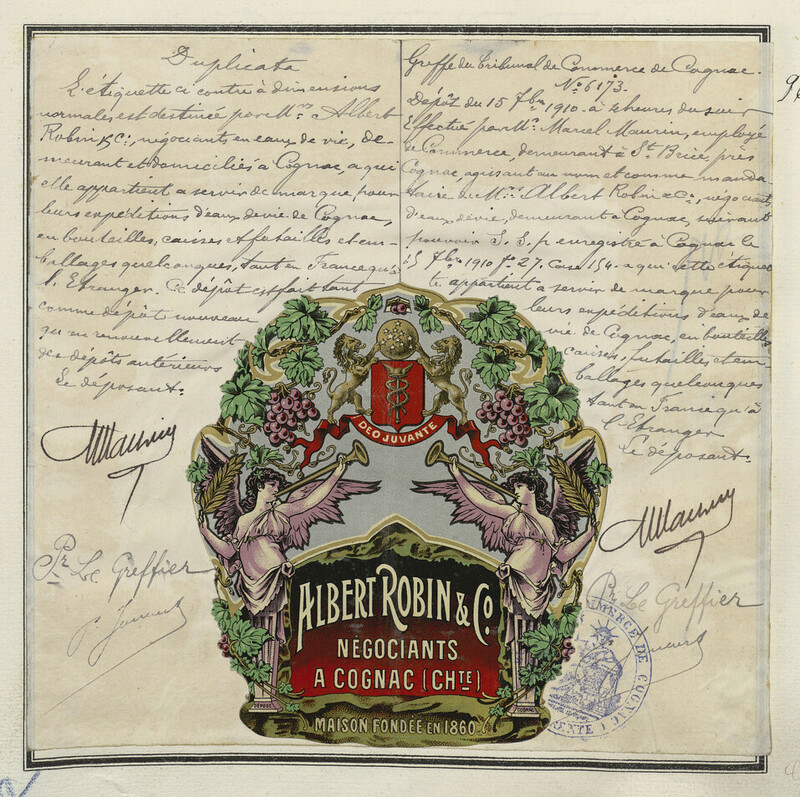 Duplicata
L'étiquette ci contre à dimensions
normales est destinée par Mrs Albert
Robin & Cie, négociants en eaux de vie, de-
meurant et domiciliés à Cognac, a qui
elle appartient a servir de marque pour
leurs expéditions d'eaux de vie de Cognac,
en bouteilles, caisses et futailles et em-
ballages quelconques, tant en France qu'à
l'Etranger. Ce dépôt est fait tant
comme dépôts nouveau
qu'en renouvellement
des dépôts antérieurs
Le déposant.
MMaurin
Pr Le Greffier
Greffe du Tribunal de Commerce de Cognac.
No 6173.
Dépôt du 15 7bre 1910 à heures du soir
Effectué par Mr Marcel Maurin, employé
de Commerce, demeurant à St Brice, près
Cognac, agissant au nom et comme manda
taire de Mrs Albert Robin & Cie, négociants
d'eaux de vie, demeurant à Cognac, suivant
pouvoir S. S. p. enregistré à Cognac le
15 7bre 1910 fo 27. Case 154. a qui cette étiquet
te appartient a servir de marque pour
leurs expéditions d'eaux de
vie de Cognac, en bouteilles
caisses, futailles et em
ballages quelconques
tant en France qu'à
l'Etranger
Le déposant.
MMaurin
Pr Le Greffier
DEO JUVANTE
ALBERT ROBIN & Co.
NÉGOCIANTS
A COGNAC (CHTE)
DÉPOSÉ
COGNAC
MAISON FONDÉE EN 1860
COMMERCE DE COGNAC